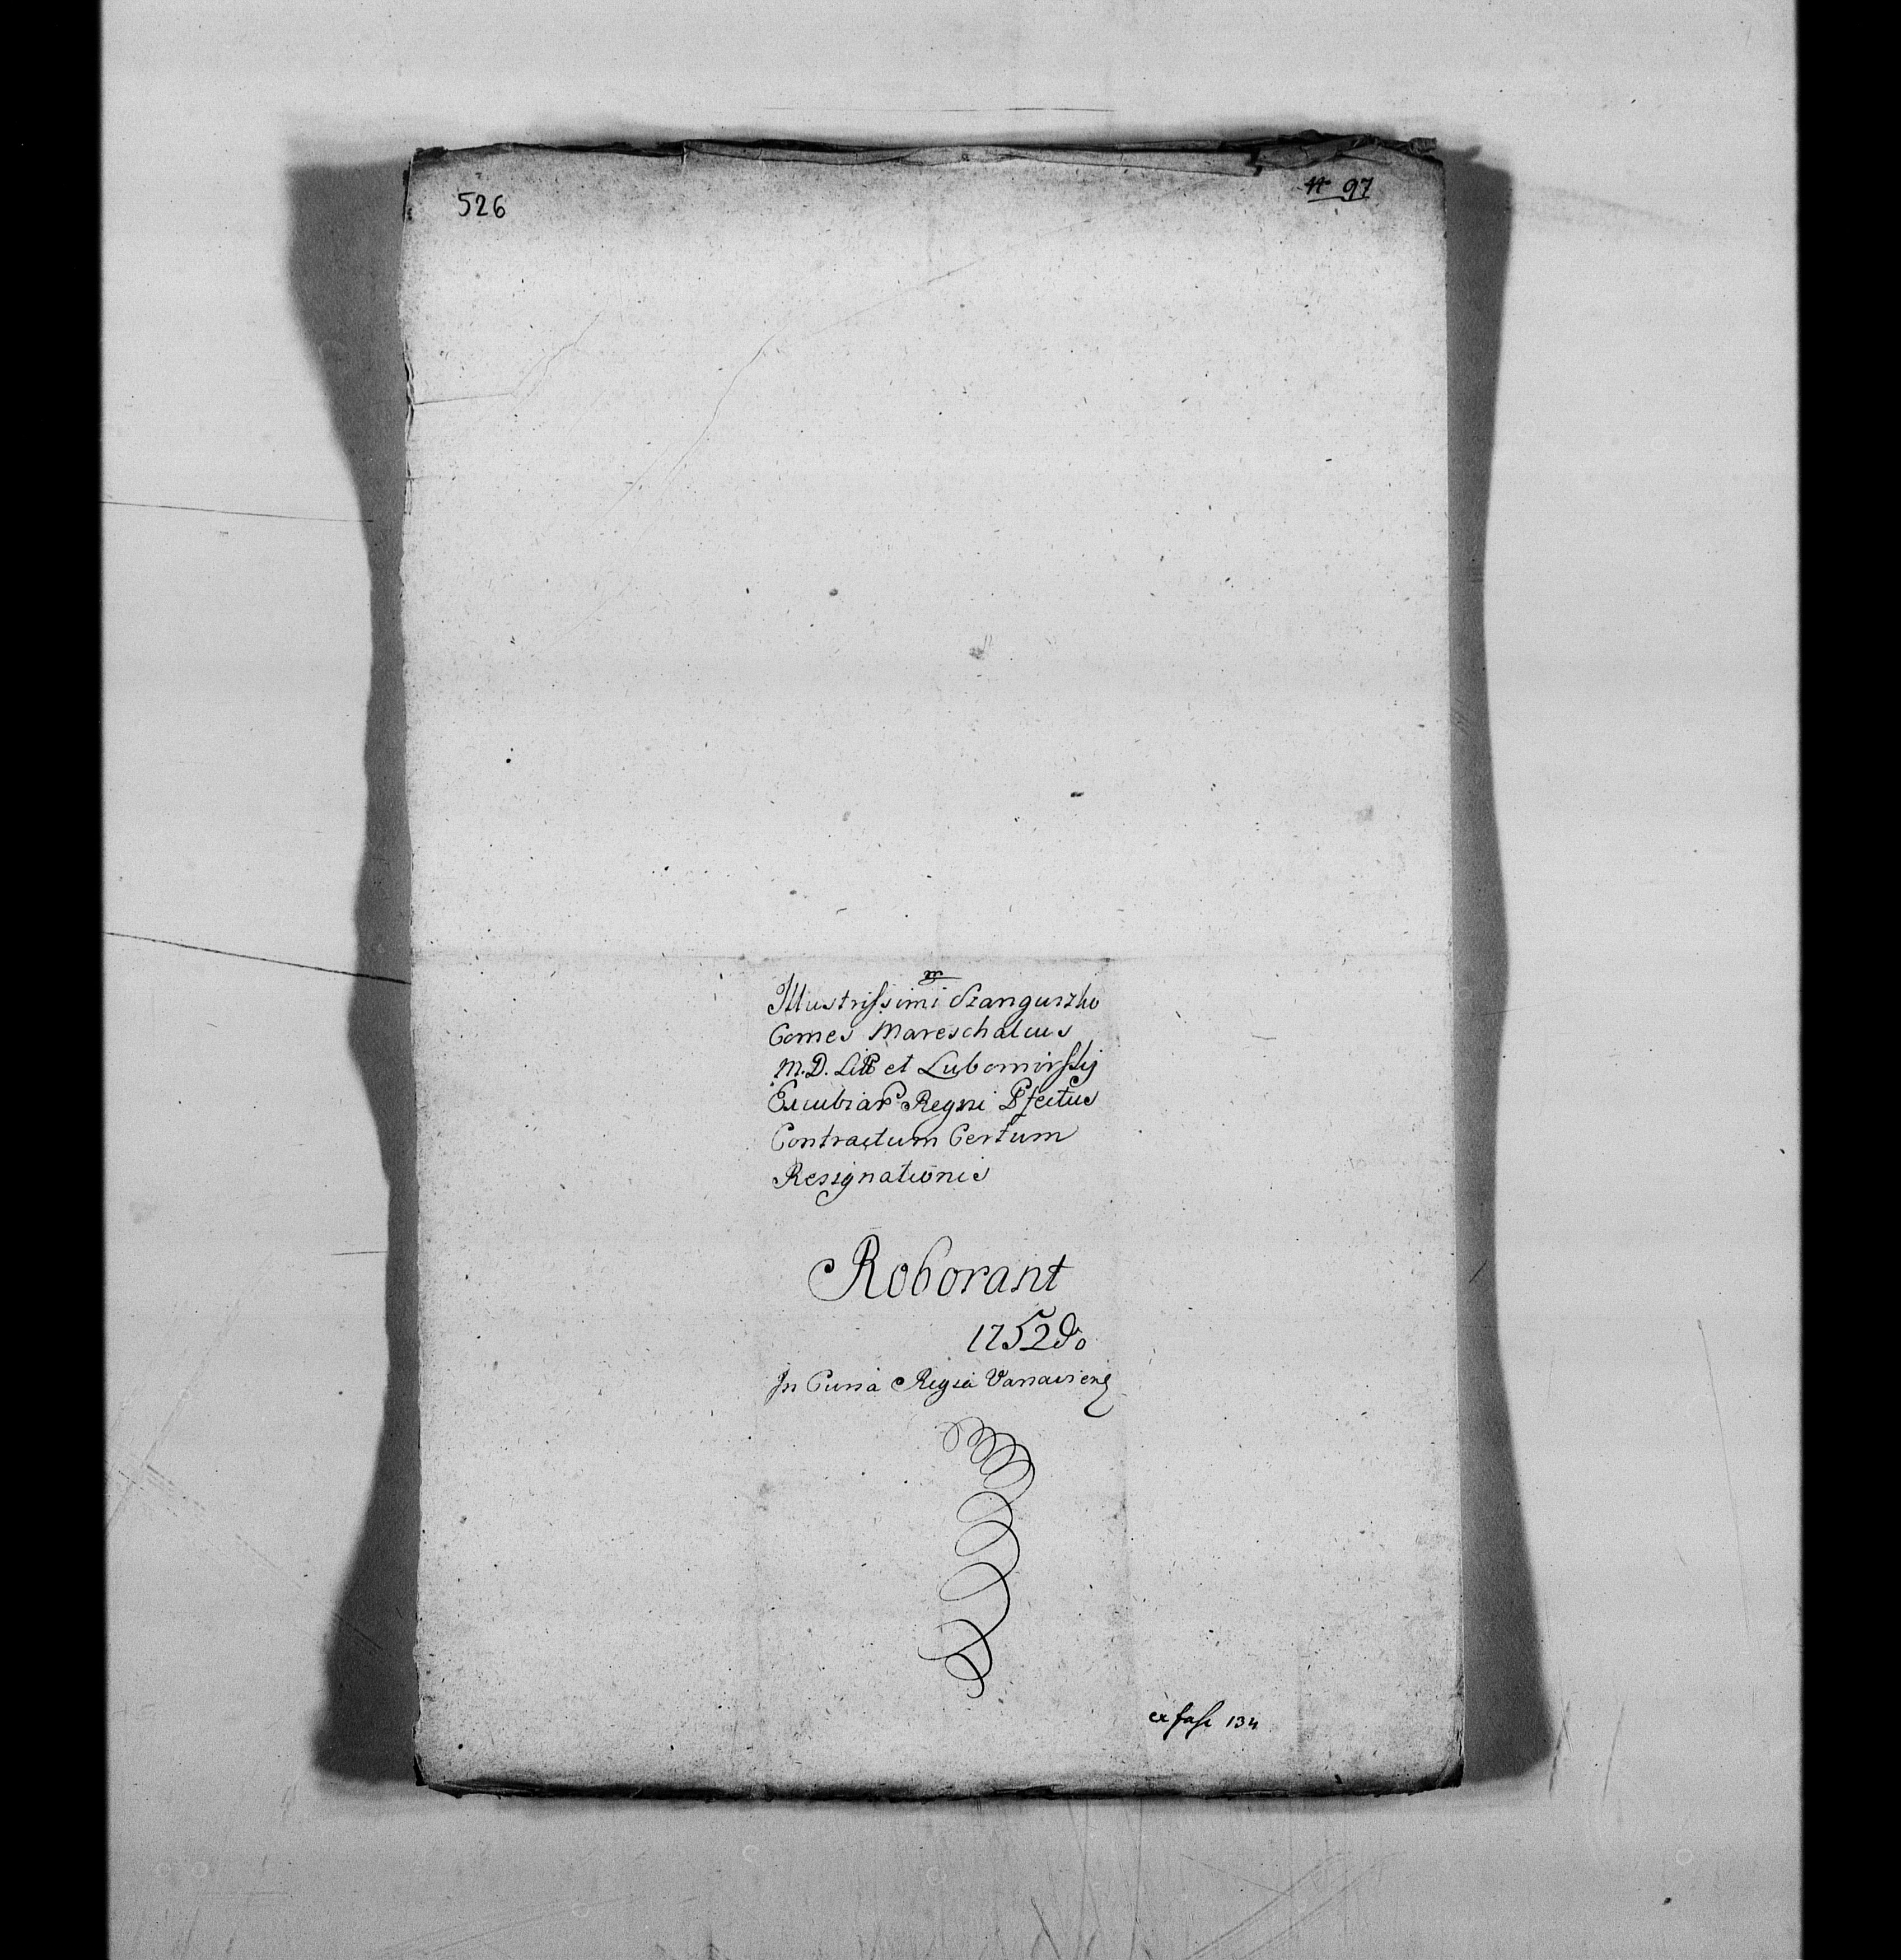 526
№ 97
Illustrissimi Szanguszko
Comes Mareschalcus
M.D. Litt et Lubomirskij
Excubiar Regni Pfectus
Contractum Certum
Ressignationis
Roborant
1752do
In Curia Regia Varsaviens
ex fasc 134